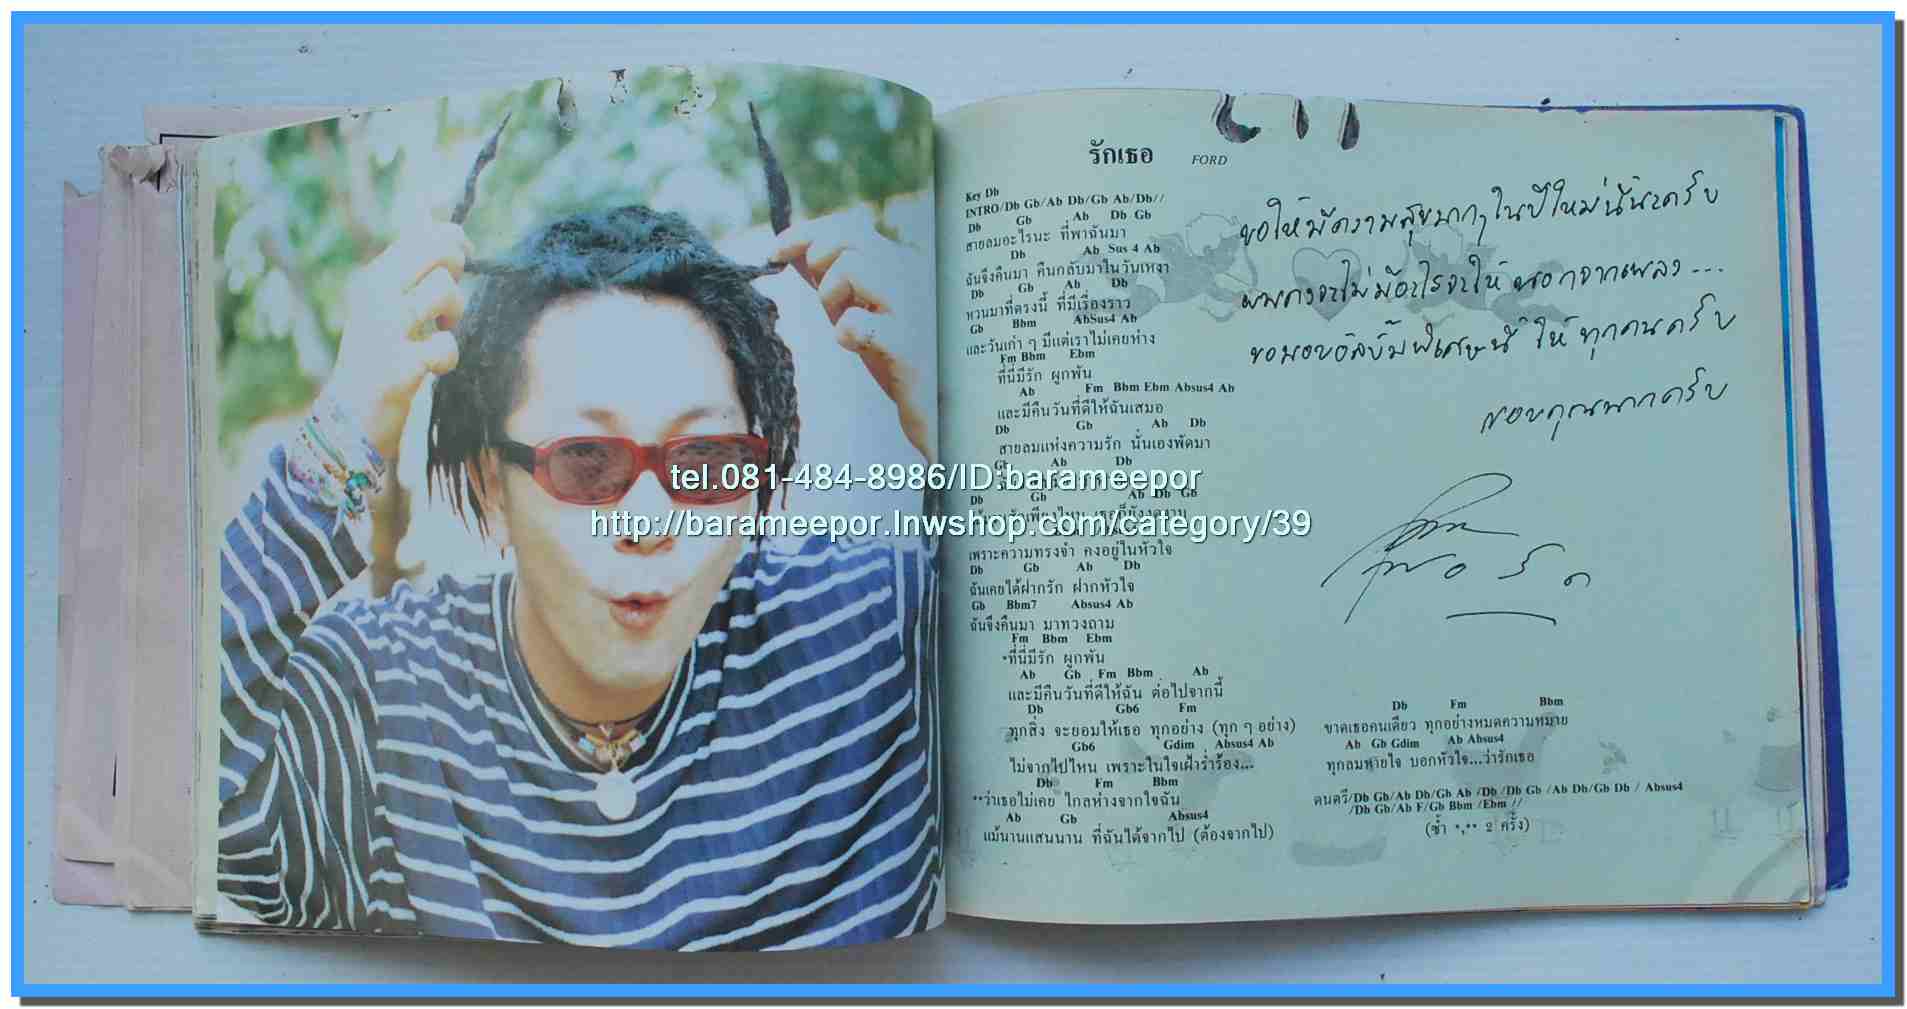 รักเธอ FORD
Key Db
INTRO/Db Gb/Ab Db/Gb Ab/Db//
Gb Ab Db Gb
Db
สายลมอะไรนะ ที่พาฉันมา
Db Ab Sus 4 Ab
ฉันจึงคืนมา คืนกลับมาในวันเหงา
Db Gb Ab Db
หวนมาที่ตรงนี้ ที่มีเรื่องราว
Gb Bbm AbSus4 Ab
และวันเก่า ๆ มีแต่เราไม่เคยห่าง
Fm Bbm Ebm
ที่นี่มีรัก ผูกพัน
Ab Fm Bbm Ebm Absus4 Ab
และมีคืนวันที่ดีให้ฉันเสมอ
Db Gb Ab Db
สายลมแห่งความรัก นั่นเองพัดมา
Gb Ab Db
Db Gb Ab Db Gb
เพราะความทรงจำ คงอยู่ในหัวใจ
Db Gb Ab Db
ฉันเคยได้ฝากรัก ฝากหัวใจ
Gb Bbm7 Absus4 Ab
ฉันจึงคืนมา มาทวงถาม
Fm Bbm Ebm
*ที่นี่มีรัก ผูกพัน
Ab Gb Fm Bbm Ab
และมีคืนวันที่ดีให้ฉัน ต่อไปจากนี้
Db Gb6 Fm
ทุกสิ่ง จะยอมให้เธอ ทุกอย่าง (ทุก ๆ อย่าง)
Gb6 Gdim Absus4 Ab
ไม่จากไปไหน เพราะในใจเฝ้าร่ำร้อง...
Db Fm Bbm
**ว่าเธอไม่เคย ไกลห่างจากใจฉัน
Ab Gb Absus4
แม้นานแสนนาน ที่ฉันได้จากไป (ต้องจากไป)
Db Fm Bbm
ขาดเธอคนเดียว ทุกอย่างหมดความหมาย
Ab Gb Gdim Ab Absus4
ทุกลมหายใจ บอกหัวใจ...ว่ารักเธอ
ดนตรี/Db Gb/Ab Db/Gb Ab /Db /Db Gb /Ab Db/Gb Db / Absus4
/Db Gb/Ab F/Gb Bbm /Ebm //
(ซ้ำ *,** 2 ครั้ง)
ขอให้มีความสุขมากๆ ในปีใหม่นี้นะครับ
ผมคงจะไม่มีอะไรจะให้ นอกจากเพลง...
ขอมอบอัลบั้มพิเศษนี้ ให้ทุกคนครับ
ขอบคุณมากครับ
ฟอร์ด
tel.081-484-8986/ID:barameepor
http://barameepor.lnwshop.com/category/39